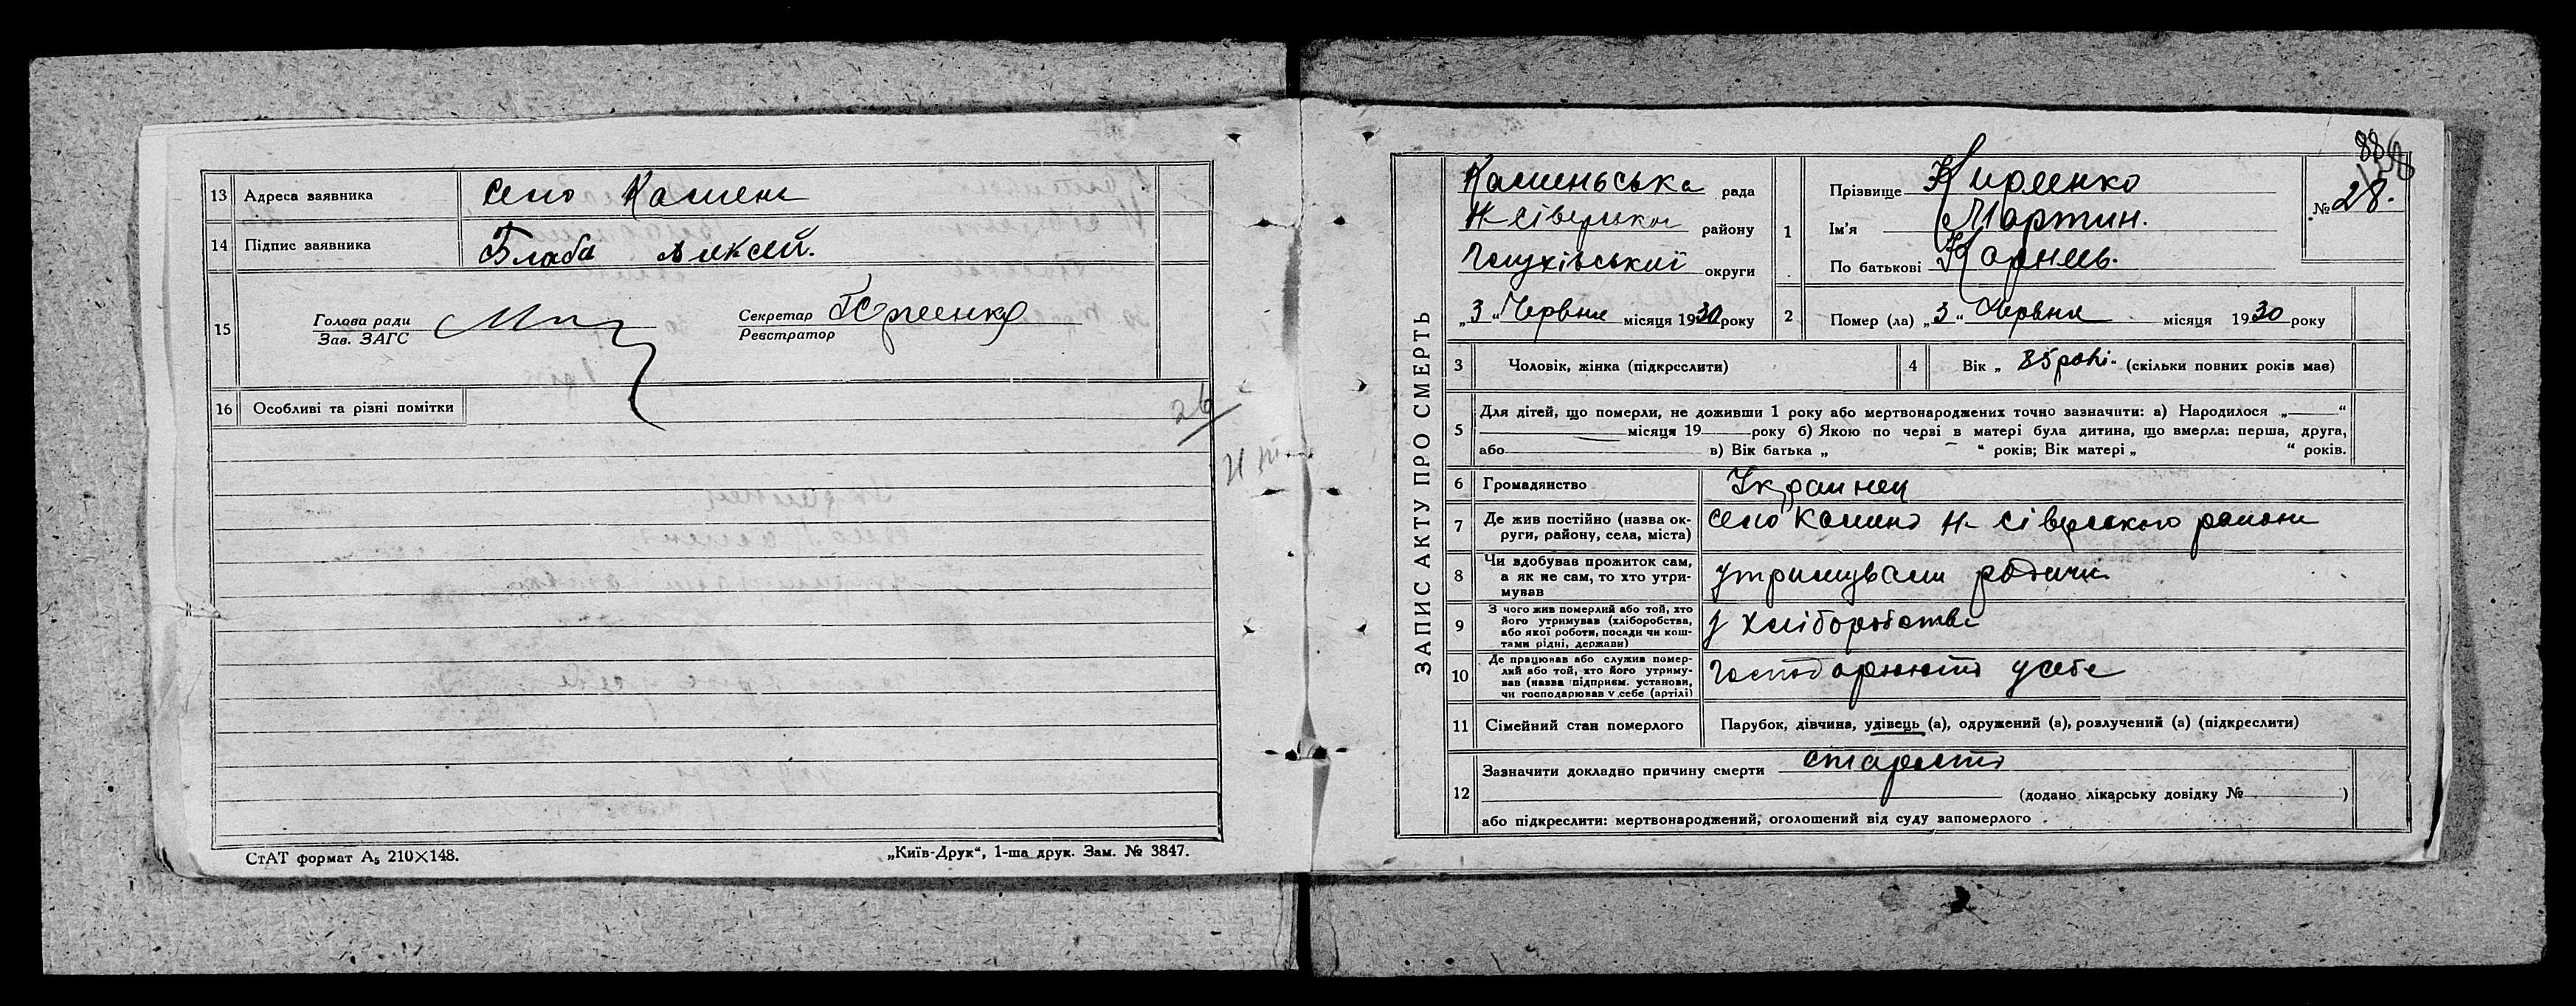 13 Адреса заявника село Камень
14 Підпис заявника Блаба Алексей.
15 Голова ради Зав. ЗАГС Секретар Реєстратор
16 Особливі та різні помітки
26
СтАТ формат А₅ 210×148.
„Київ-Друк“, 1-ша друк. Зам. № 3847.
ЗАПИС АКТУ ПРО СМЕРТЬ
88
Каменьська рада
Н-Сіверського району
Глухівської округи
„3“ Червня місяця 1930 року
1 Прізвище Кирменко
Ім’я Мартин.
По батькові Карнеев.
№ 28.
2 Помер (ла) „3“ Червня місяця 1930 року
3 Чоловік, жінка (підкреслити)
4 Вік „ 85 рокі. (скільки повних років має)
5 Для дітей, що померли, не доживши 1 року або мертвонароджених точно зазначити: а) Народилося „ “
місяця 19 року б) Якою по черзі в матері була дитина, що вмерла: перша, друга,
або в) Вік батька „ “ років; Вік матері „ “ років.
6 Громадянство Украинец
7 Де жив постійно (назва округи, району, села, міста) село Камень Н-Сіверского району
8 Чи здобував прожиток сам, а як не сам, то хто утримував утримували родичи
9 З чого жив померлий або той, хто його утримував (хліборобства, або якої роботи, посади чи коштами рідні, держави) з хліборобства
10 Де працював або служив померлий або той, хто його утримував (назва підприєм. установи, чи господарював у себе (артілі) господарюють у себе
11 Сімейний стан померлого Парубок, дівчина, удівець (а), одружений (а), розлучений (а) (підкреслити)
12 Зазначити докладно причину смерти старость
(додано лікарську довідку № )
або підкреслити: мертвонароджений, оголошений від суду запомерлого